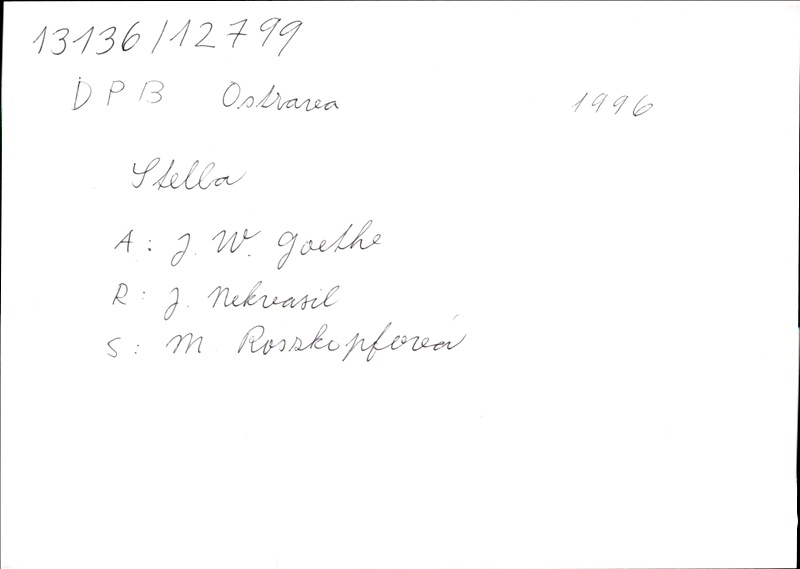 13136/12799
DPB Ostrava 1996
Stella
A: J. W. Goethe
R: J. Nekvasil
S: M. Roszkopfová